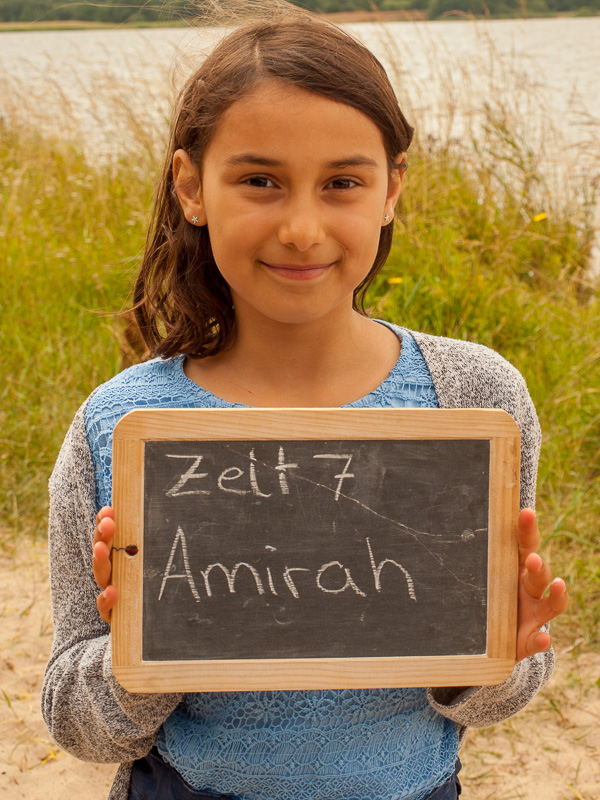 Zelt 7
Amirah